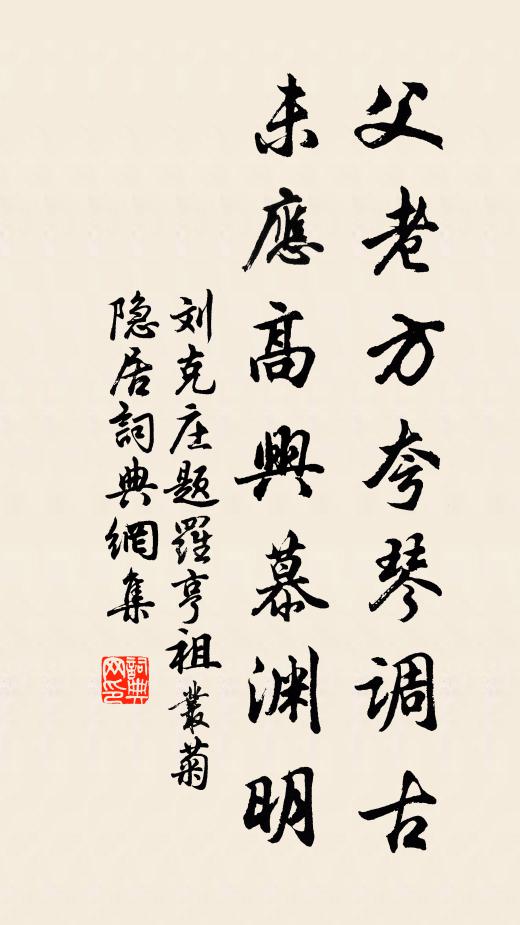 父老方夸琴调古
未應高興慕渊明
刘克庄题羅亨祖叢菊
隐居詞典網集
詞典网印